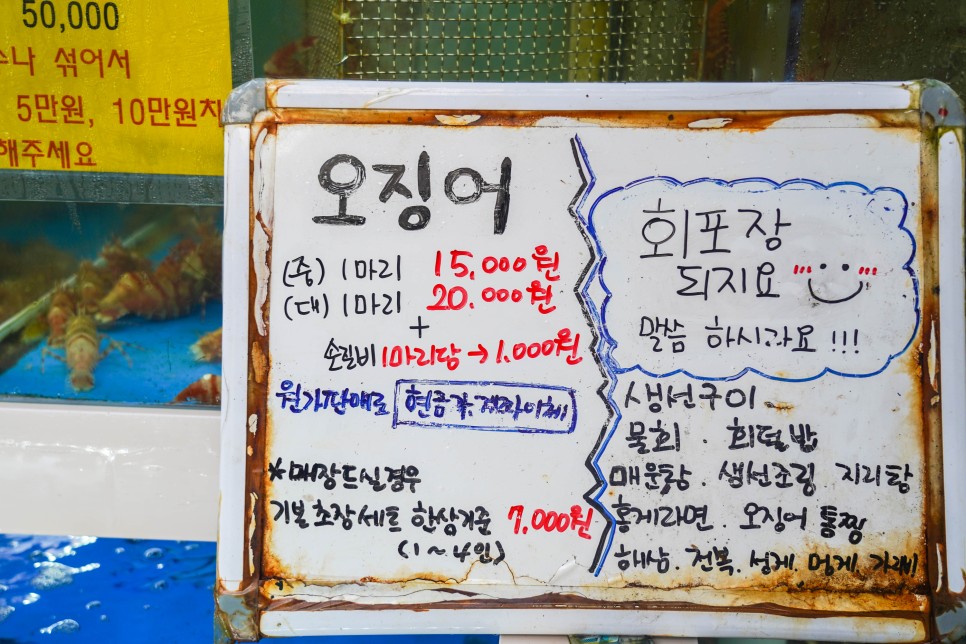 50,000
섞어서
5만원, 10만원치
해주세요
오징어
(중) 1마리 15,000원
(대) 1마리 20.000원
+
손질비 1마리당 → 1.000원
원가판매로 현금 계좌이체
*매장드실경우
기본 초장세트 한상기준 7,000원
(1~4인)
회포장
되지요
말씀 하시라요 !!!
생선구이
물회 · 회덮밥
매운탕 . 생선조림 지리탕
홍게라면 . 오징어 통찜
해삼 . 전복 . 성게 . 멍게 . 가리비